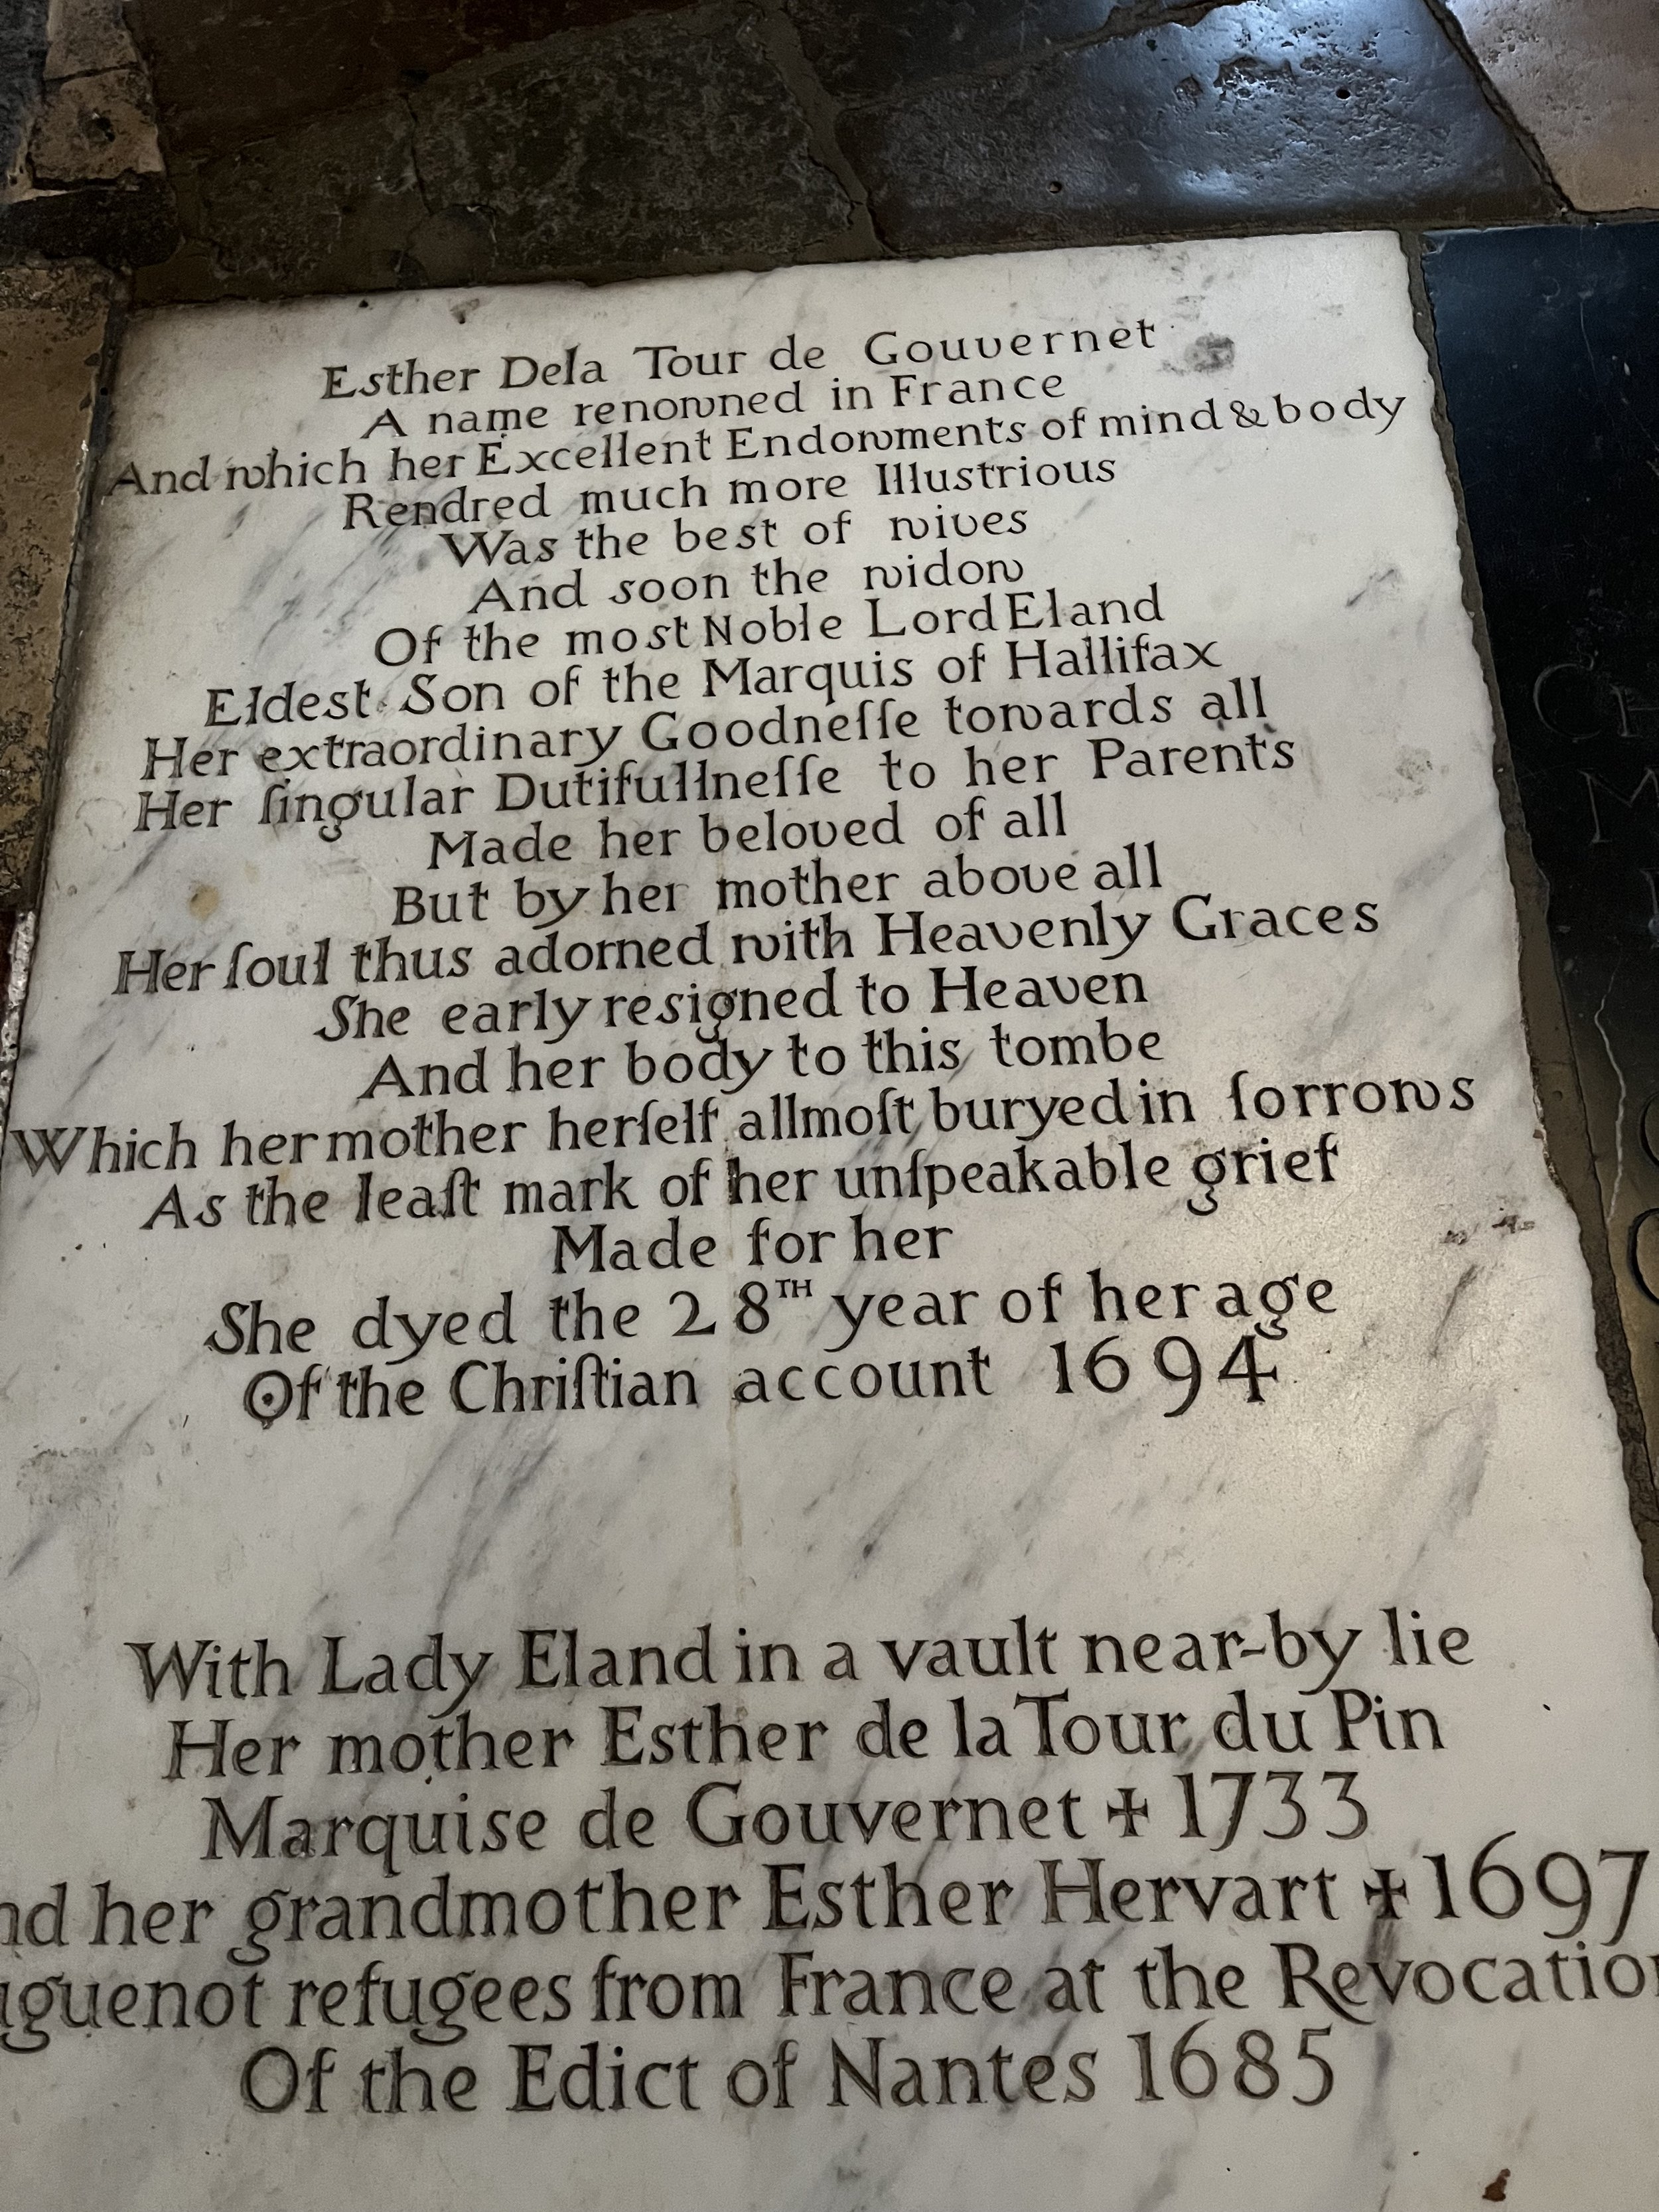 Esther Dela Tour de Gouvernet
A name renowned in France
And which her Excellent Endowments of mind & body
Rendred much more Illustrious
Was the best of wives
And soon the widow
Of the most Noble Lord Eland
Eldest Son of the Marquis of Hallifax
Her extraordinary Goodneſſe towards all
Her ſingular Dutifullneſſe to her Parents
Made her beloved of all
But by her mother above all
Her ſoul thus adorned with Heavenly Graces
She early resigned to Heaven
And her body to this tombe
Which her mother herſelf allmoſt buryed in ſorrows
As the leaſt mark of her unſpeakable grief
Made for her
She dyed the 28TH year of her age
Of the Chriſtian account 1694
With Lady Eland in a vault near-by lie
Her mother Esther de la Tour du Pin
Marquise de Gouvernet ✠ 1733
nd her grandmother Esther Hervart ✠ 1697
uguenot refugees from France at the Revocation
Of the Edict of Nantes 1685